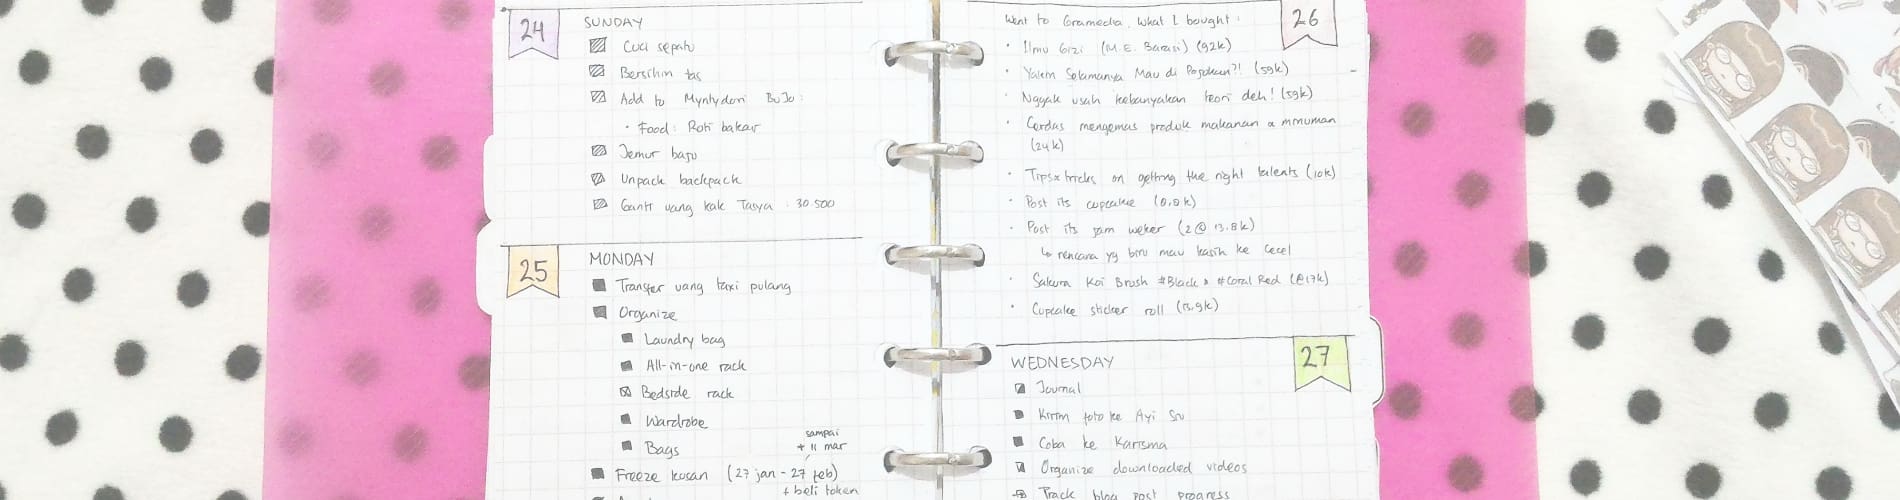 24
SUNDAY
Cuci sepatu
Bersihin tas
Add to Myntydori BuJo :
• Food : Roti bakar
Jemur baju
Unpack backpack
Ganti uang kak Tasya : 30.500
25
MONDAY
Transfer uang taxi pulang
Organize
Laundry bag
All-in-one rack
Bedside rack
Wardrobe
Bags
sampai
+ 11 mar
Freeze kosan (27 jan - 27 feb)
+ beli token
26
Went to Gramedia. What I bought :
• Ilmu Gizi (M.E. Barasi) (92k)
• Yakin Selamanya Mau di Pojokan?! (59k)
• Nggak usah kebanyakan teori deh! (59k)
• Cerdas mengemas produk makanan & minuman
(24k)
• Tips & tricks on getting the right talents (10k)
• Post its cupcake
• Post its jam weker (2 @ 13.8k)
↳ rencana yg biru mau kasih ke Cecel
• Sakura Koi Brush #Black & #Coral Red (@17k)
• Cupcake sticker roll
27
WEDNESDAY
Journal
Kirim foto ke Ayi Su
Coba ke Karisma
Organize downloaded videos
Track blog post progress